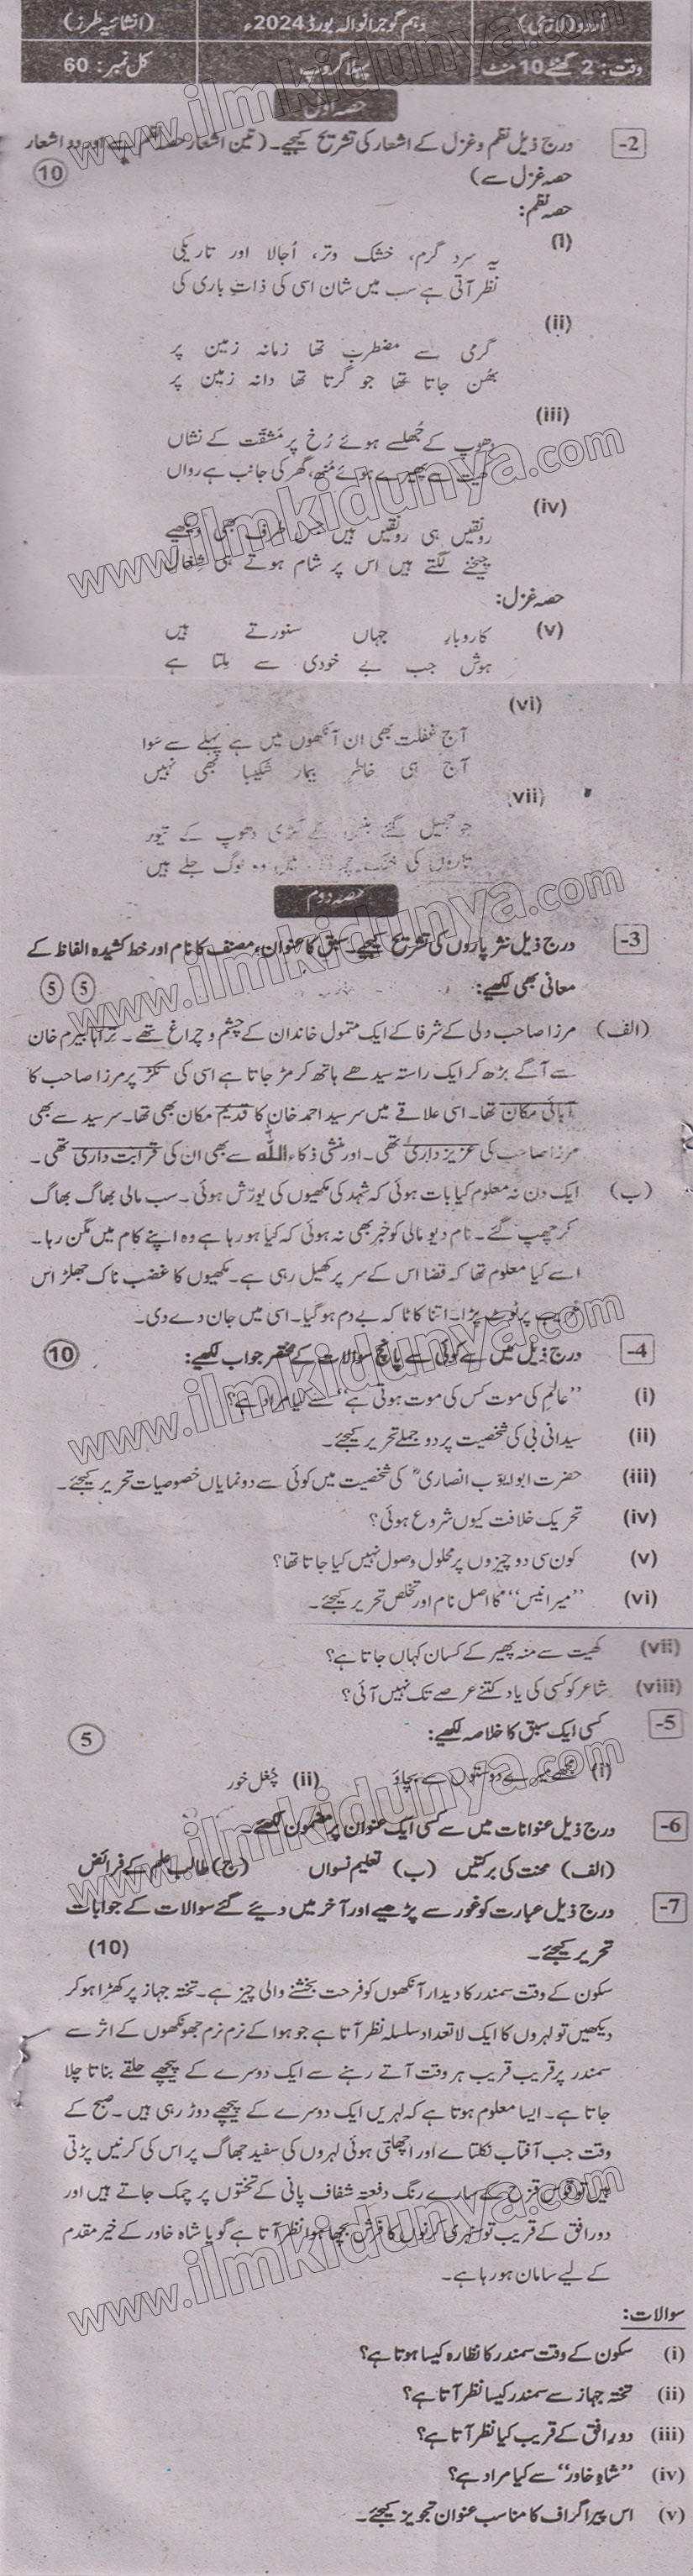 اردو (لازمی) دہم گوجرانوالہ بورڈ 2024ء (انشائیہ طرز)
وقت: 2 گھنٹے 10 منٹ پہلا گروپ کل نمبر: 60
حصہ اول
2- درج ذیل نظم و غزل کے اشعار کی تشریح کیجیے۔ (تین اشعار حصہ نظم سے اور دو اشعار
حصہ غزل سے) 10
حصہ نظم:
(i) یہ سرد گرم، خشک و تر، اُجالا اور تاریکی
نظر آتی ہے سب میں شان اسی کی ذاتِ باری کی
(ii) گرمی سے مضطرب تھا زمانہ زمین پر
بھُن جاتا تھا جو گرتا تھا دانہ زمین پر
(iii) دھوپ کے جُھلسے ہوئے رُخ پر مَشقّت کے نشاں
کھیت سے پھیرے ہوئے مُنھ، گھر کی جانب ہے رواں
(iv) رونقیں ہی رونقیں ہیں جس طرف بھی دیکھیے
چیخنے لگتے ہیں اس پر شام ہوتے ہی شِغال
حصہ غزل:
(v) کاروبارِ جہاں سنورتے ہیں
ہوش جب بے خودی سے مِلتا ہے
(vi) آج غفلت بھی ان آنکھوں میں ہے پہلے سے سَوا
آج ہی خاطرِ بیمار شکیبا بھی نہیں
(vii) جو جھیل گئے ہنس کے کڑی دھوپ کے تیور
تاروں کی خنک چھاؤں میں وہ لوگ جلے ہیں
حصہ دوم
3- درج ذیل نثر پاروں کی تشریح کیجیے۔ سبق کا عنوان، مصنف کا نام اور خط کشیدہ الفاظ کے
معانی بھی لکھیے: 5 5
(الف) مرزا صاحب دلی کے شرفا کے ایک متمول خاندان کے چشم و چراغ تھے۔ تراہا بیرم خان
سے آگے بڑھ کر ایک راستہ سیدھے ہاتھ کو مڑ جاتا ہے اسی کی نکڑ پر مرزا صاحب کا
آبائی مکان تھا۔ اسی علاقے میں سر سید احمد خان کا قدیم مکان بھی تھا۔ سر سید سے بھی
مرزا صاحب کی عزیز داری تھی۔ اور منشی ذکاء اللہ سے بھی ان کی قرابت داری تھی۔
(ب) ایک دن نہ معلوم کیا بات ہوئی کہ شہد کی مکھیوں کی یورش ہوئی۔ سب مالی بھاگ بھاگ
کر چھپ گئے۔ نام دیو مالی کو خبر بھی نہ ہوئی کہ کیا ہو رہا ہے وہ اپنے کام میں مگن رہا۔
اسے کیا معلوم تھا کہ قضا اس کے سر پر کھیل رہی ہے۔ مکھیوں کا غضب ناک جھلڑ اس
غریب پر ٹوٹ پڑا۔ اتنا کاٹا کہ بے دم ہو گیا۔ اسی میں جان دے دی۔
4- درج ذیل میں سے کوئی سے پانچ سوالات کے مختصر جواب لکھیے: 10
(i) ’’عالِم کی موت کس کی موت ہوتی ہے‘‘ سے کیا مراد ہے؟
(ii) سیدانی بی کی شخصیت پر دو جملے تحریر کیجئے۔
(iii) حضرت ابو ایوب انصاریؓ کی شخصیت میں کوئی سے دو نمایاں خصوصیات تحریر کیجئے۔
(iv) تحریک خلافت کیوں شروع ہوئی؟
(v) کون سی دو چیزوں پر محلول وصول نہیں کیا جاتا تھا؟
(vi) ’’میر انیس‘‘ کا اصل نام اور تخلص تحریر کیجئے۔
(vii) کھیت سے منہ پھیر کے کسان کہاں جاتا ہے؟
(viii) شاعر کو کسی کی یاد کتنے عرصے تک نہیں آئی؟
5- کسی ایک سبق کا خلاصہ لکھیے: 5
(i) مجھے میرے دوستوں سے بچاؤ (ii) چُغل خور
6- درج ذیل عنوانات میں سے کسی ایک عنوان پر مضمون لکھئے۔
(الف) محنت کی برکتیں (ب) تعلیم نسواں (ج) طالب علم کے فرائض
7- درج ذیل عبارت کو غور سے پڑھیے اور آخر میں دیئے گئے سوالات کے جوابات
تحریر کیجئے۔ (10)
سکون کے وقت سمندر کا دیدار آنکھوں کو فرحت بخشنے والی چیز ہے۔ تختہ جہاز پر کھڑا ہو کر
دیکھیں تو لہروں کا ایک لاتعداد سلسلہ نظر آتا ہے جو ہوا کے نرم نرم جھونکھوں کے اثر سے
سمندر پر قریب قریب ہر وقت آتے رہنے سے ایک دوسرے کے پیچھے حلقے بناتا چلا
جاتا ہے۔ ایسا معلوم ہوتا ہے کہ لہریں ایک دوسرے کے پیچھے دوڑ رہی ہیں۔ صبح کے
وقت جب آفتاب نکلتا ہے اور اچھلتی ہوئی لہروں کی سفید جھاگ پر اس کی کرنیں پڑتی
ہیں تو قوس قزح کے سارے رنگ دفعتہ شفاف پانی کے تختوں پر چمک جاتے ہیں اور
دور افق کے قریب تو سنہری کرنوں کا فرش بچھا ہوا نظر آتا ہے گویا شاہ خاور کے خیر مقدم
کے لیے سامان ہو رہا ہے۔
سوالات:
(i) سکون کے وقت سمندر کا نظارہ کیسا ہوتا ہے؟
(ii) تختہ جہاز سے سمندر کیسا نظر آتا ہے؟
(iii) دور افق کے قریب کیا نظر آتا ہے؟
(iv) ’’شاہِ خاور‘‘ سے کیا مراد ہے؟
(v) اس پیراگراف کا مناسب عنوان تجویز کیجئے۔
www.ilmkidunya.com
www.ilmkidunya.com
www.ilmkidunya.com
www.ilmkidunya.com
www.ilmkidunya.com
www.ilmkidunya.com